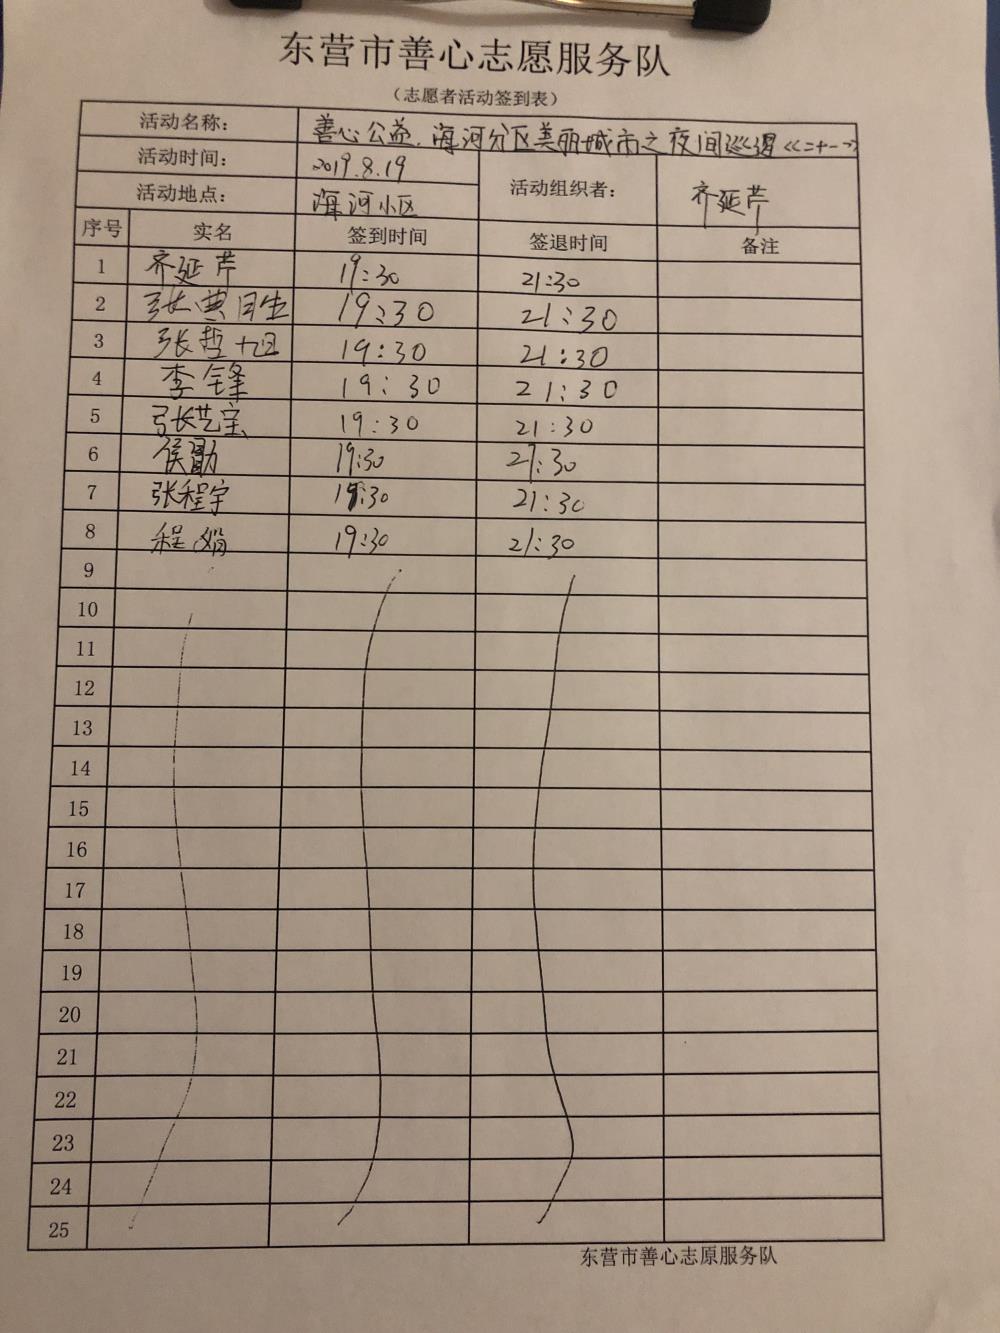 东营市善心志愿服务队
（志愿者活动签到表）
活动名称： 善心公益.海河分区美丽城市之夜间巡逻<<二十一>>
活动时间： 2019.8.19 活动组织者： 齐延芹
活动地点： 海河小区
序号 实名 签到时间 签退时间 备注
1 齐延芹 19:30 21:30
2 张 19:30 21:30
3 张哲 19:30 21:30
4 李锋 19:30 21:30
5 张艺宝 19:30 21:30
6 侯勋 19:30 21:30
7 张程宇 19:30 21:30
8 程娟 19:30 21:30
9
10
11
12
13
14
15
16
17
18
19
20
21
22
23
24
25
东营市善心志原服务队